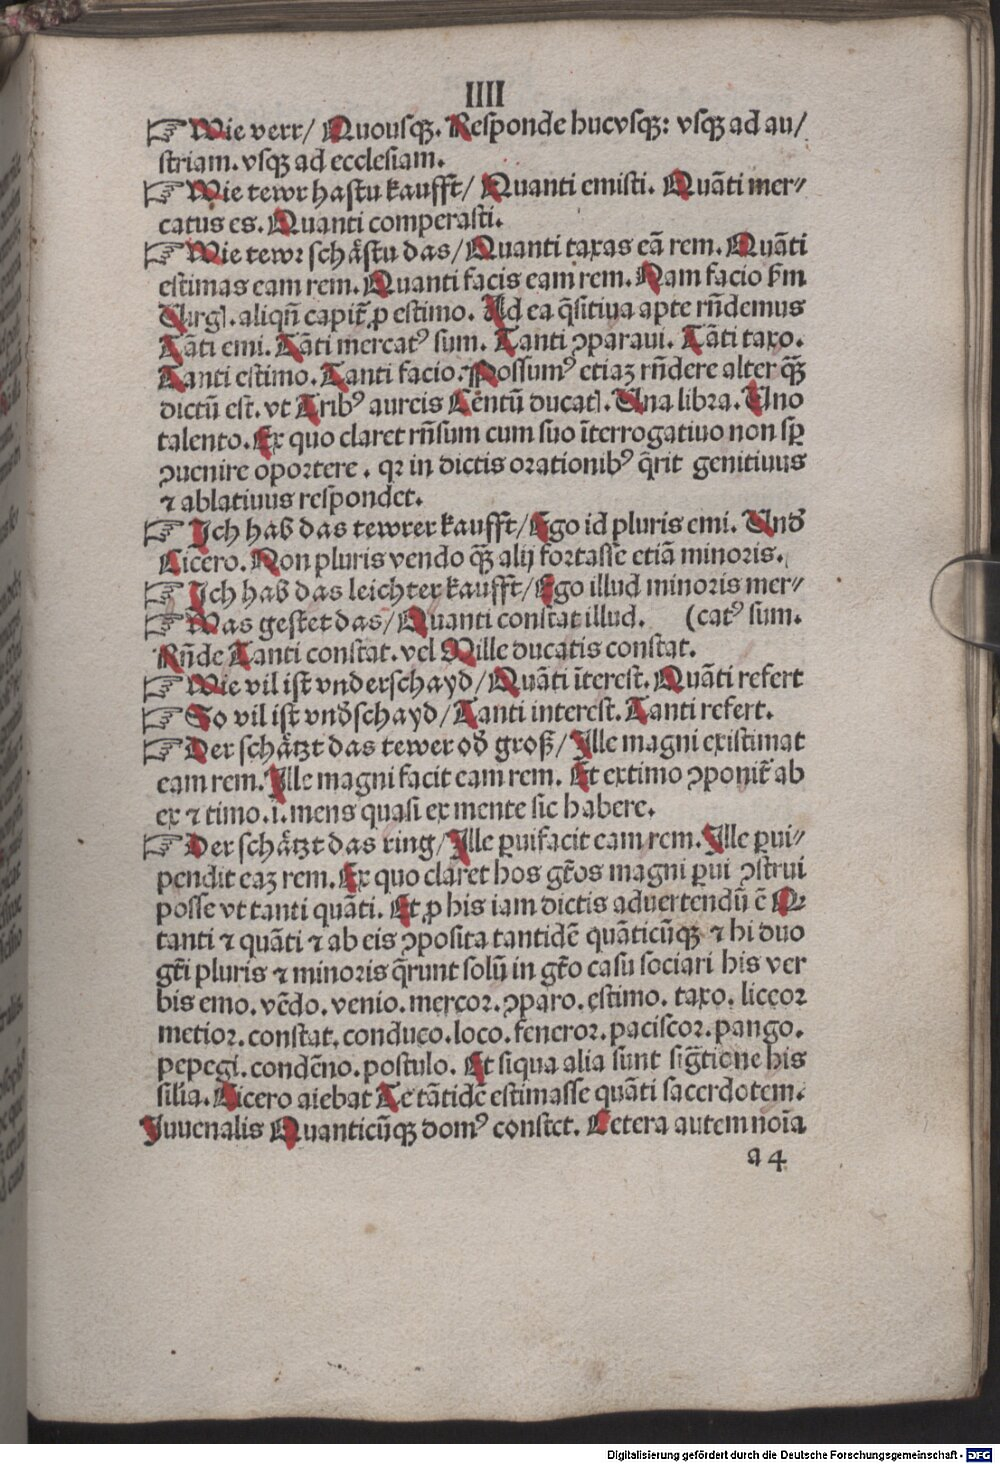 IIII
☞ Wie verr/ Quousqꝫ. Responde hucvsqꝫ: vsqꝫ ad au/
striam. vsqꝫ ad ecclesiam.
☞ Wie tewr hastu kaufft/ Quanti emisti. Quāti mer⸗
catus es. Quanti comperasti.
☞ Wie tewr schåstu das/ Quanti taxas eā rem. Quāti
estimas eam rem. Quanti facis eam rem. Nam facio ẜm
aliqñ capit᷑ ꝓ estimo. Ad ea q̄sitiua apte rñdemus
Tāti emi. Tāti mercatꝰ sum. Tanti ꝯparaui. Tāti taxo.
Tanti estimo. Tanti facio. Possumꝰ etiaꝫ rñdere alter qꝫ̄
dictū est. vt Tribꝰ aureis Centū ducat. Una libra. Uno
talento. Ex quo claret rñsum cum suo īterrogatiuo non sꝑ
ꝯuenire oportere. qꝛ in dictis orationibꝰ q̄rit genitiuus
⁊ ablatiuus respondet.
☞ Ich hab das tewrer kaufft/ Ego id pluris emi. Vnđ
Cicero. Non pluris vendo qꝫ̄ alij fortasse etiā minoris.
☞ Ich hab das leichter kaufft/ Ego illud minoris mer⸗
☞ Was gestet das/ Quanti constat illud. (catꝰ sum.
Rñde Tanti constat. vel Mille ducatis constat.
☞ Wie vil ist vnderschayd/ Quāti īterest. Quāti refert
☞ So vil ist vnđschayd/ Tanti interest. Tanti refert.
☞ Der schåtzt das tewer ođ groß/ Ille magni existimat
eam rem. Ille magni facit eam rem. Et extimo ꝯponit᷑ ab
ex ⁊ timo. i. mens quasi ex mente sic habere.
☞ Der schåtzt das ring/ Ille ꝑuifacit eam rem. Ille ꝑui⸗
pendit eaꝫ rem. Ex quo claret hos gt̄os magni ꝑui ꝯstrui
posse vt tanti quāti. Et ꝓ his iam dictis aduertendū ē Qꝛ
tanti ⁊ quāti ⁊ ab eis ꝯposita tantidē quāticūqꝫ ⁊ hi duo
gt̄i pluris ⁊ minoris q̄runt solū in gt̄o casu sociari his ver
bis emo. vēdo. venio. mercor. ꝯparo. estimo. taxo. liceor
metior. constat. conduco. loco. feneror. paciscor. pango.
pepegi. condēno. postulo. Et siqua alia sunt sig̅tione his
silia. Cicero aiebat Te tātidē estimasse quāti sacerdotem.
Juuenalis Quanticūqꝫ domꝰ constet. Cetera autem noīa
a 4
Digitalisierung gefördert durch die Deutsche Forschungsgemeinschaft - DFG